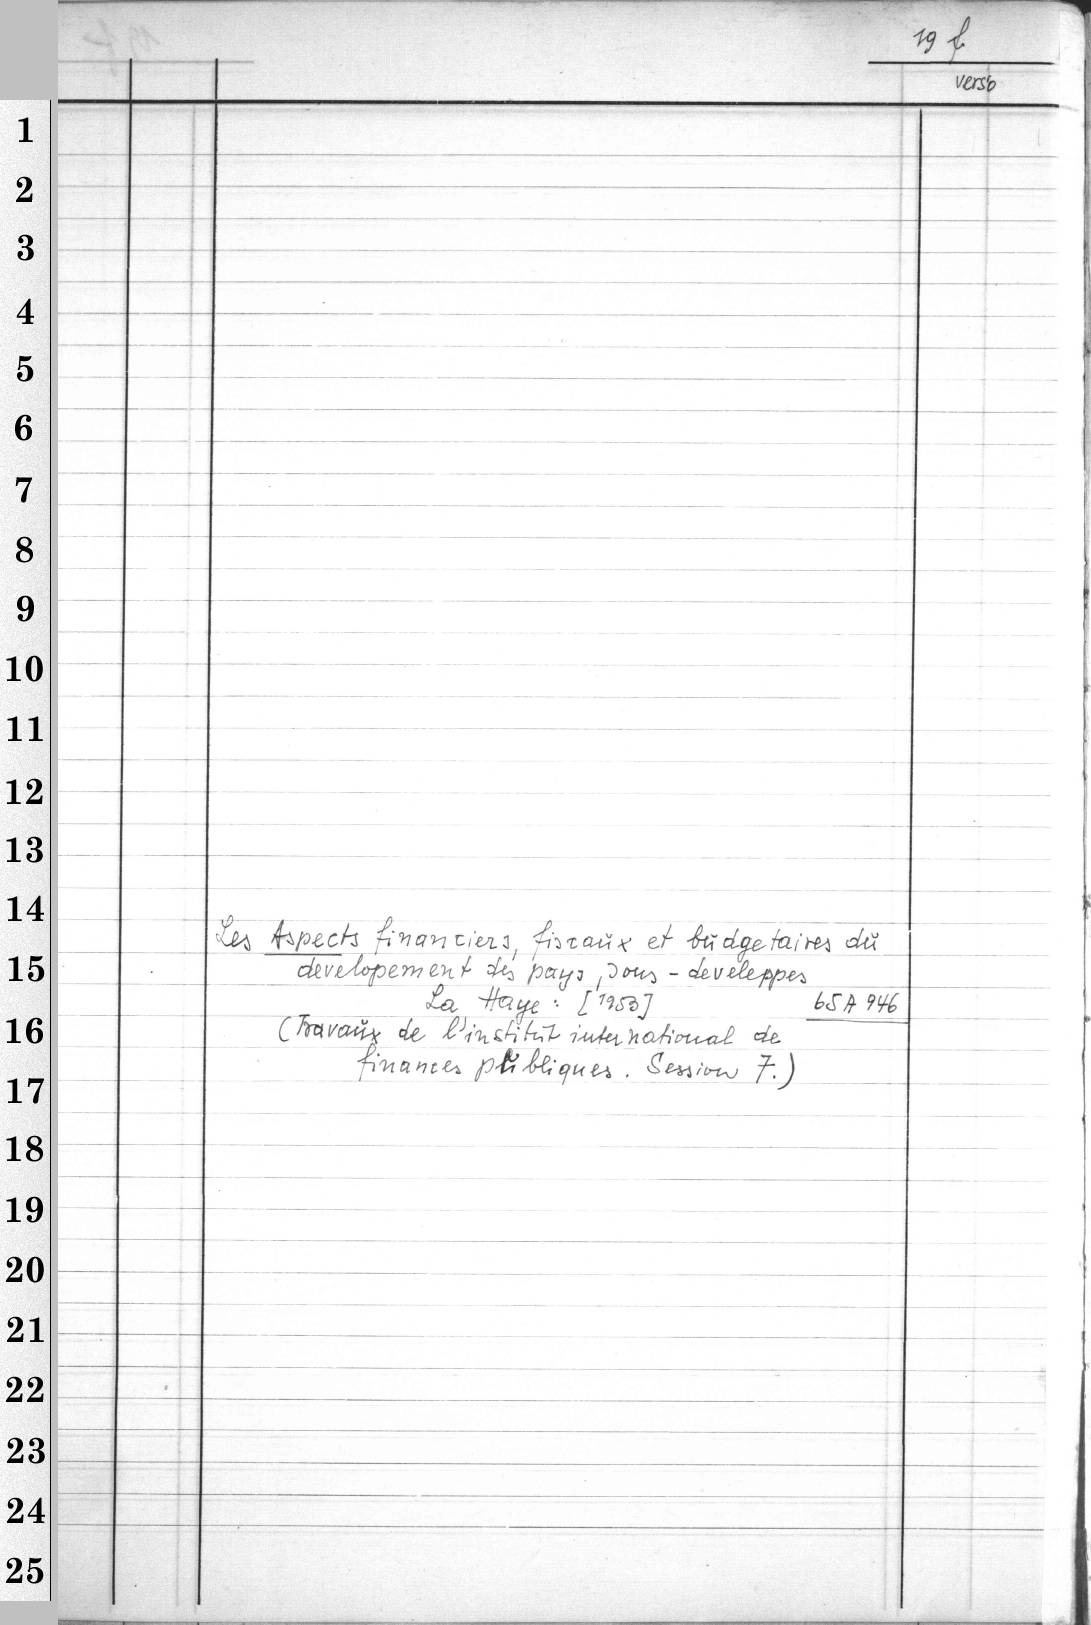 19 f
verso
1
2
3
4
5
6
7
8
9
10
11
12
13
14
Les Aspects financiers, fiscaux et budgetaires du
15
developement des pays, sous-develeppes
La Haye: [1953] 65 A 946
16
(Travaux de l'institut international de
finances publiques. Session 7.)
17
18
19
20
21
22
23
24
25